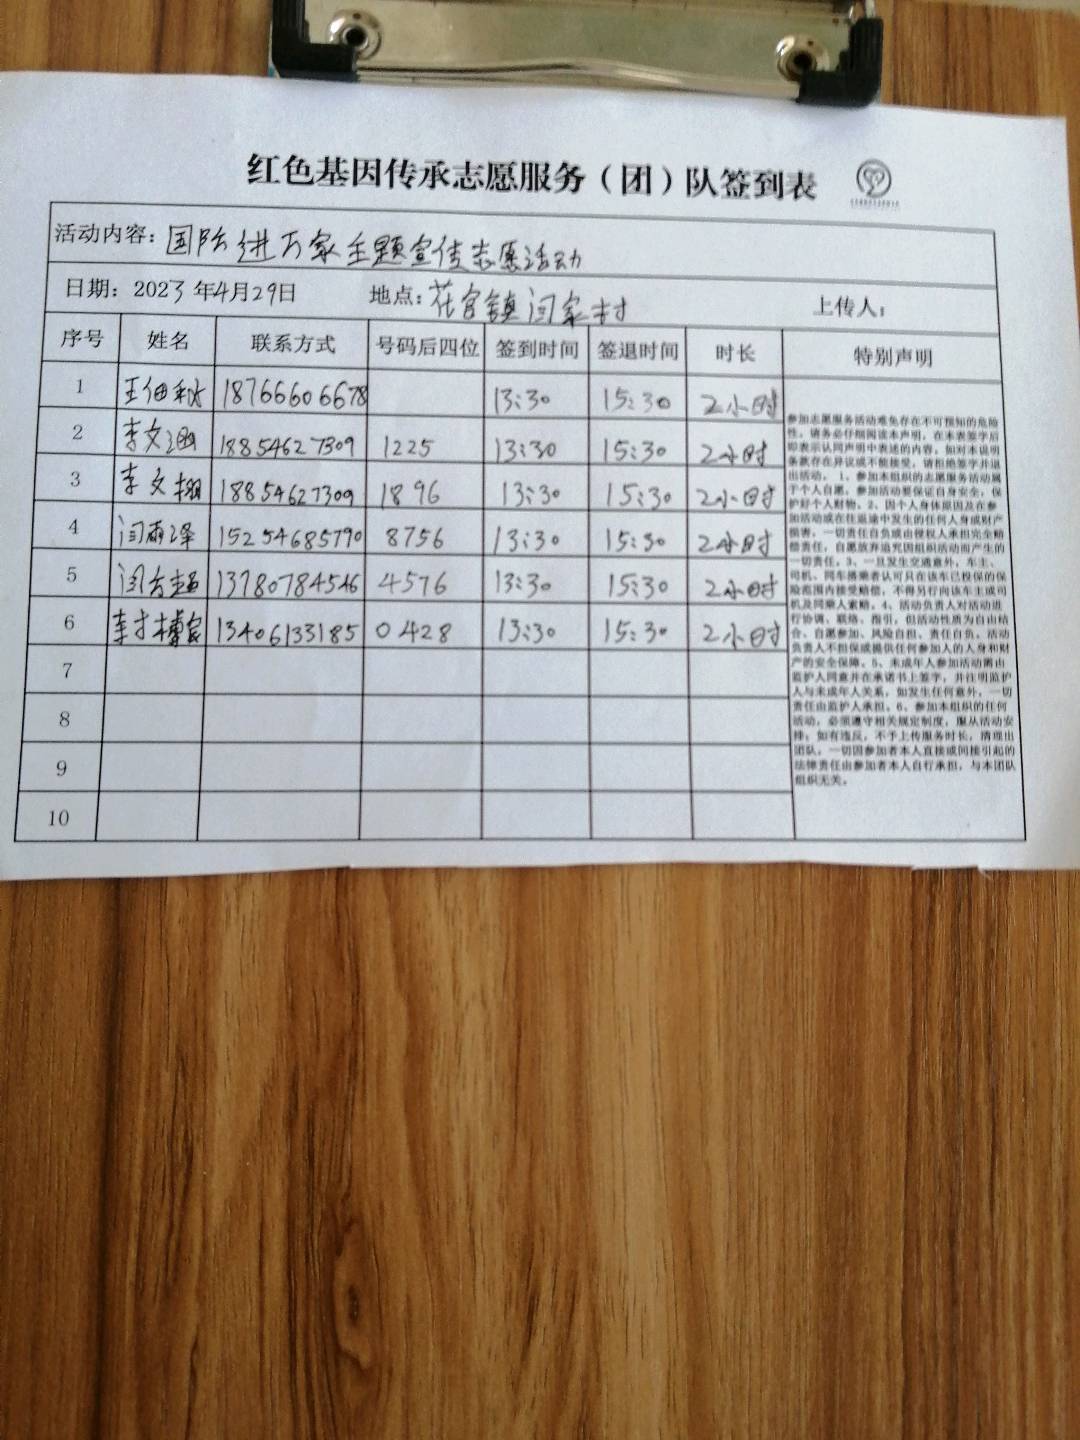 红色基因传承志愿服务（团）队签到表
活动内容：国防进万家主题宣传志愿活动
日期：2023年4月29日 地点：花官镇闫家村 上传人：
序号 姓名 联系方式 号码后四位 签到时间 签退时间 时长 特别声明
1 王佃秋 18766606678 13:30 15:30 2小时
2 李文涵 18854627309 1225 13:30 15:30 2小时
3 李文栩 18854627309 1896 13:30 15:30 2小时
4 闫雨泽 15254685790 8756 13:30 15:30 2小时
5 闫超 13780784546 4576 13:30 15:30 2小时
6 李 13406133185 0428 13:30 15:30 2小时
7
8
9
10
参加志愿服务活动难免存在不可预知的危险
性，请务必仔细阅读本声明，在本表签字后
即表示认同声明中表述的内容。如对本说明
条款存在异议或不能接受，请拒绝签字并退
出活动。1、参加本组织的志愿服务活动属
于个人自愿，参加活动要保证自身安全，保
护好个人财物。2、因个人身体原因及在参
加活动或在往返途中发生的任何人身或财产
损害，一切责任自负或由侵权人承担完全赔
偿责任，自愿放弃追究因组织活动而产生的
一切责任。3、一旦发生交通意外，车主、
司机、同车搭乘者认可只在该车已投保的保
险范围内接受赔偿，不得另行向该车主或司
机及同乘人索赔。4、活动负责人对活动进
行协调、联络、指引，但活动性质为自由结
合、自愿参加、风险自担、责任自负。活动
负责人不担保或提供任何参加人的人身和财
产的安全保障。5、未成年人参加活动需由
监护人同意并在承诺书上签字，并注明监护
人与未成年人关系，如发生任何意外，一切
责任由监护人承担。6、参加本组织的任何
活动，必须遵守相关规定制度，服从活动安
排；如有违反，不予上传服务时长，清理出
团队。一切因参加者本人直接或间接引起的
法律责任由参加者本人自行承担，与本团队
组织无关。